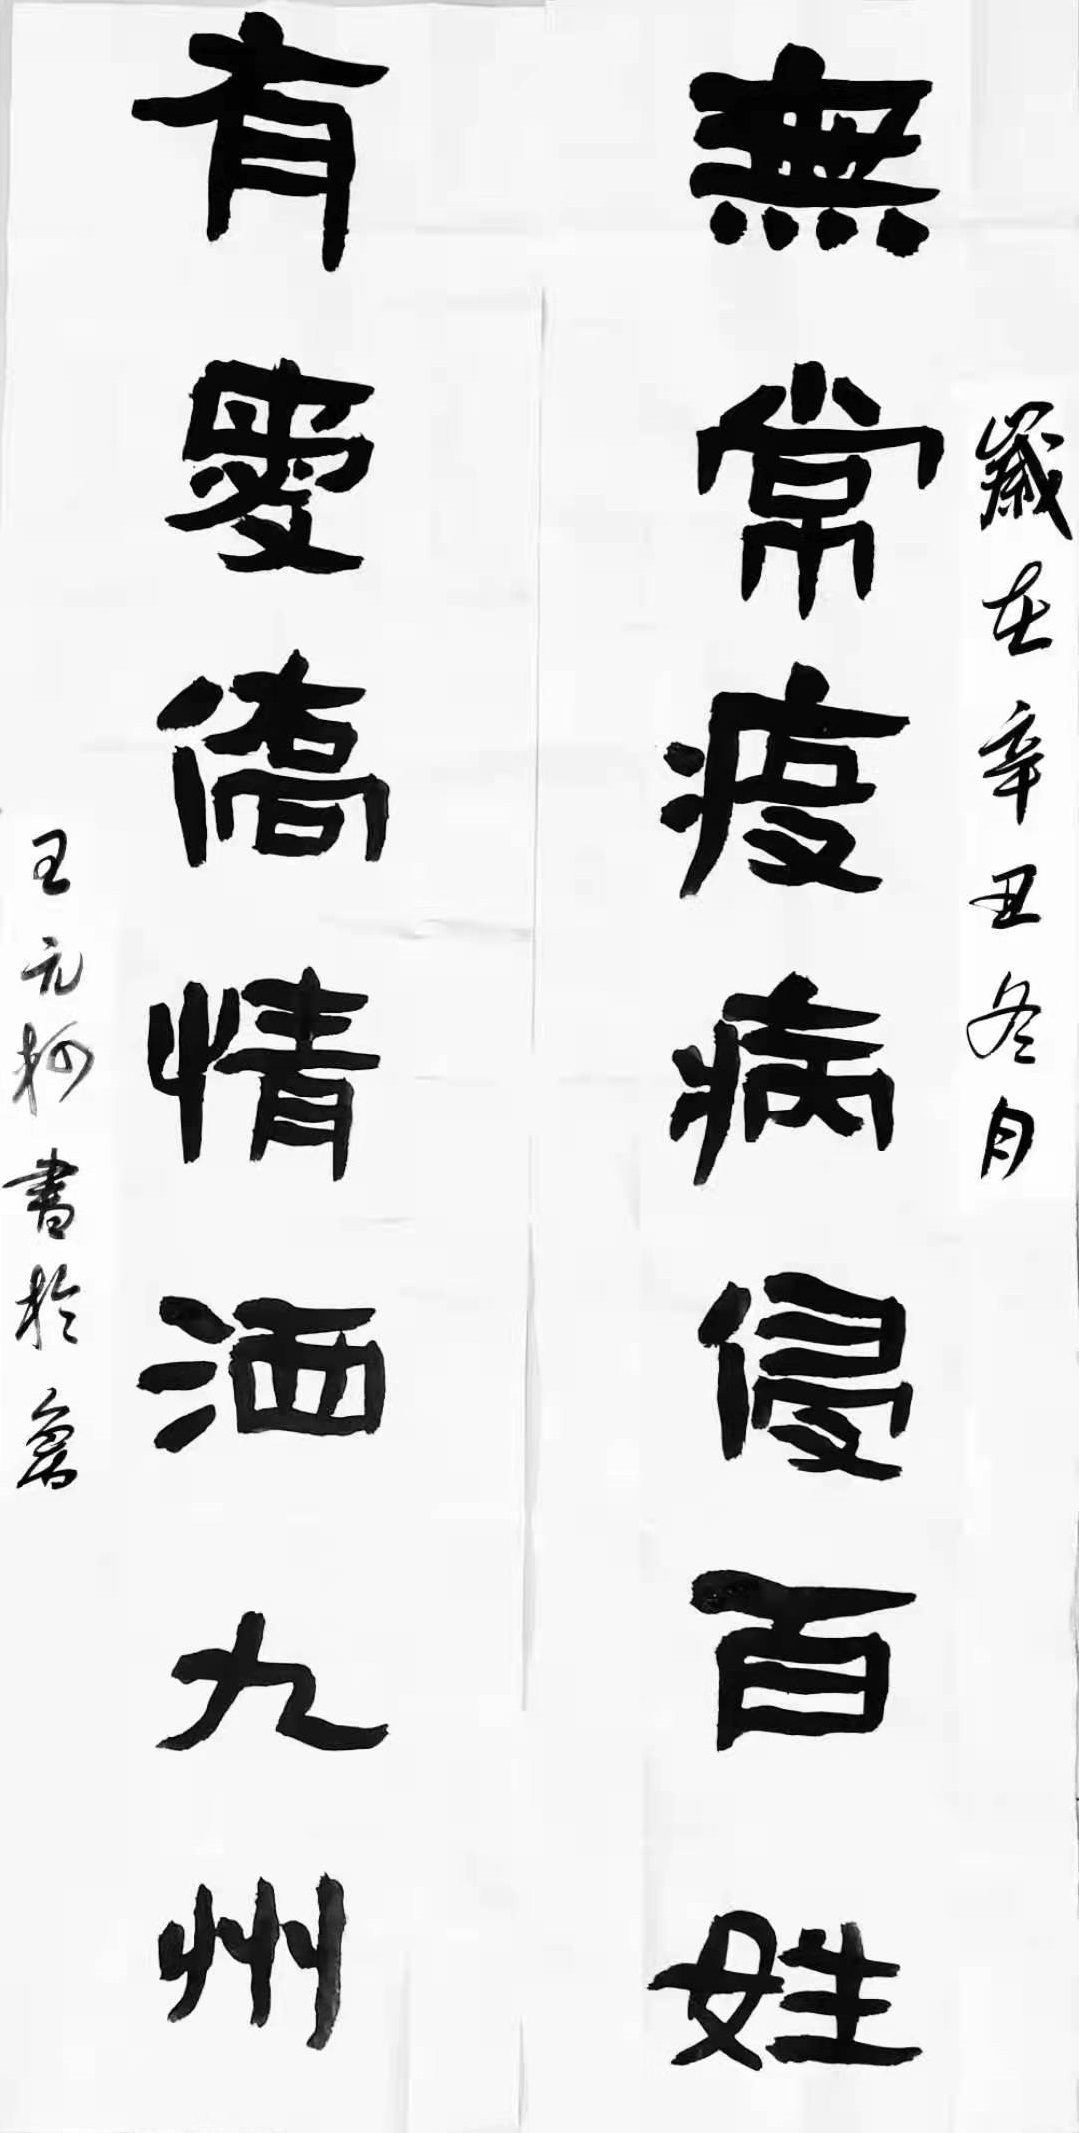 歲在辛丑冬月
無常疫病侵百姓
有愛僑情洒九州
王元柯書於魯